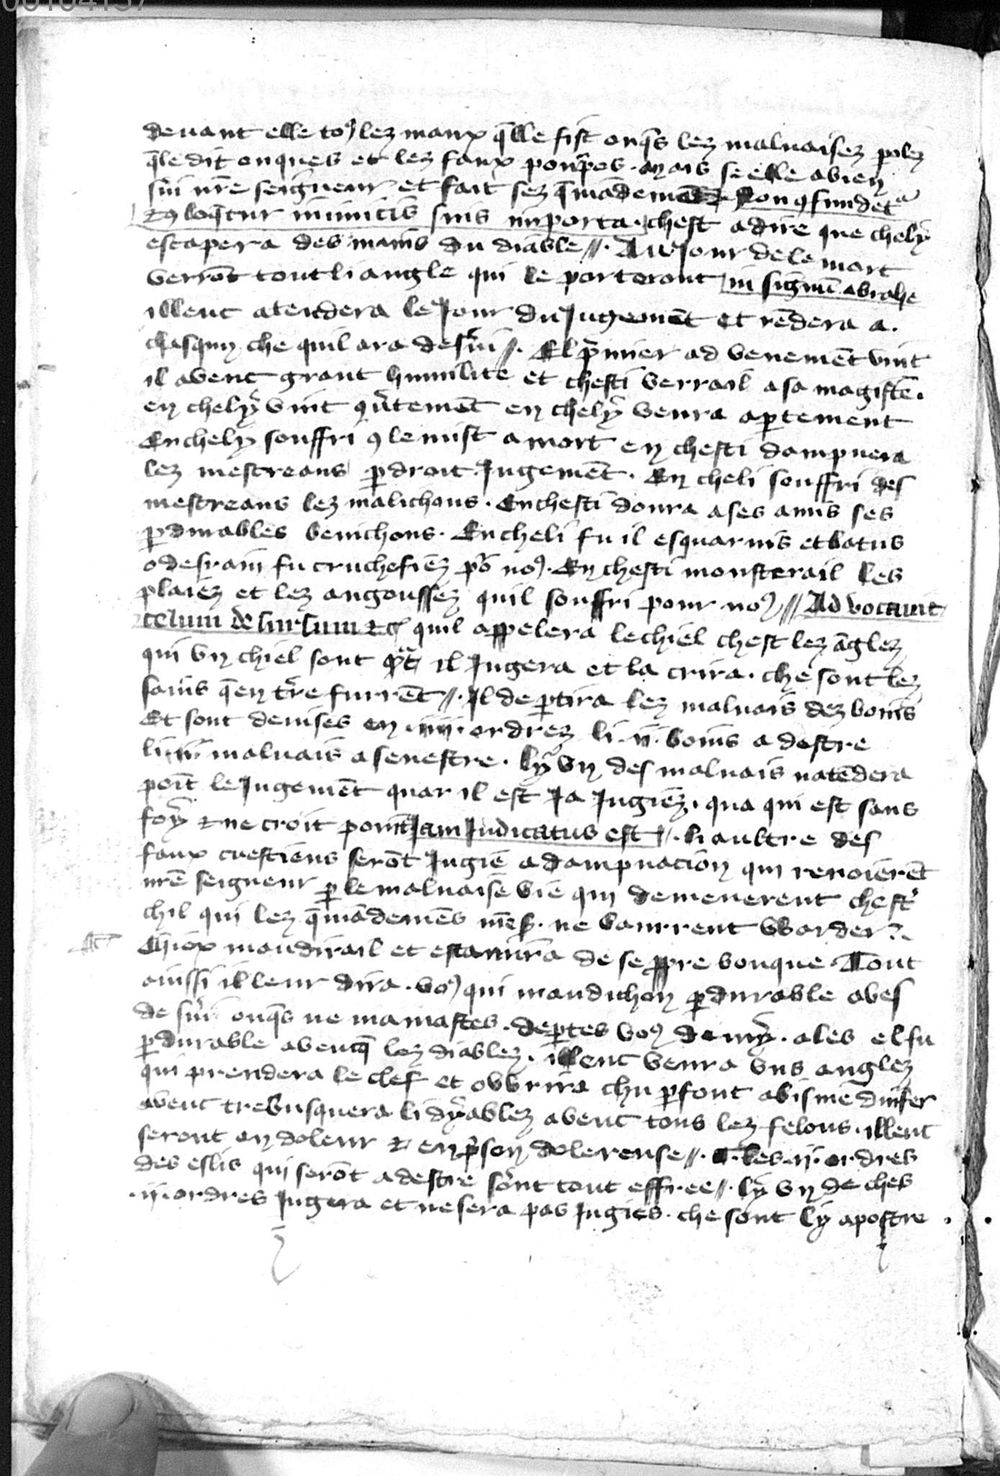 00104137
deuant elle toꝯ lez maux q̄lle fist onq̄s lez maluaisez polez
q̄le dit onques et lez faux pourpos · Mais se elle a bien
s̃ui nr̄e seigneur et fait sez q̄māndemēs Non ꝯfundet᷑
cū loq̄tur inimicis suis in porta · chest a dire que chely
escapera des mains du diable // · Au Jour de le mort
verrōt tout li angle qui le porteront in signū abrahe
illeuc atendera le Jour du Jugemēt et rēdera a ·
chasqun che quil ara des̃ui // · El p̃mier ad venemēt vint
il auenc grant humilite et chesti verrail a sa magiste ·
en chely vint q̃itemēt en chely venra apertement
En chely souffri ꝯ le mist a mort en chesti dampnera
lez mescreans ꝑ droit Jugemēt · En cheli souffri des
mescreans lez malichons · En chesti donra a ses amis ses
ꝑdurables benichons · En cheli fu il esquarnis et batus
o desrain fu cruchefiez po᷑ noꝯ · En chesti monsterail les
plaiez et lez angoussez quil souffri pour noꝯ // Ad vocauit
celum de sursum ⁊c̄ quil appelera le chiel chest lez āglez
qui vn chiel sont il Jugera et la crira · che sont lez
sains q̄ en t̃re furrēt // · Il departira lez maluais dez boins
Et sont deuises en · iiii · ordrez li · ii · boins a destre
li ii maluais a senestre · ly vn des maluais natēdera
point le Jugemēt quar il est Ja Jugiez · qua qui est sans
foy ⁊ ne croit point Jam Judicatus est // · li aultre des
faux crestiens serōt Jugie a dampnacion qui renoierēt
nr̄e seigneur ꝑ le maluaise vie qui demenerent chest
chil qui lez q̄māndemēs ne vaurrent warder ·
Chiox maudirail et escamira de se ppre bouque · Tout
aussi il leur dira · voꝯ qui maudichon ꝑdurable abes
de s̃ui onq̄s ne mamastes · departes voꝯ de my · ales el fu
ꝑdurable auencq̄ lez diablez · illeuc venra vns anglez
qui prendera le clef et ovvrira chu parfont abisme dinfer
auenc trebusquera li dyablez auenc tous lez felons · illeuc
seront en doleur ⁊ en p̃son dolereuse // · Les · ii · ordres
des eslis qui serōt a destre s̃ont tout effree // · ly vn de ches
· ii · ordres Jugera et ne sera pas Jugies · che sont ly apostre ·